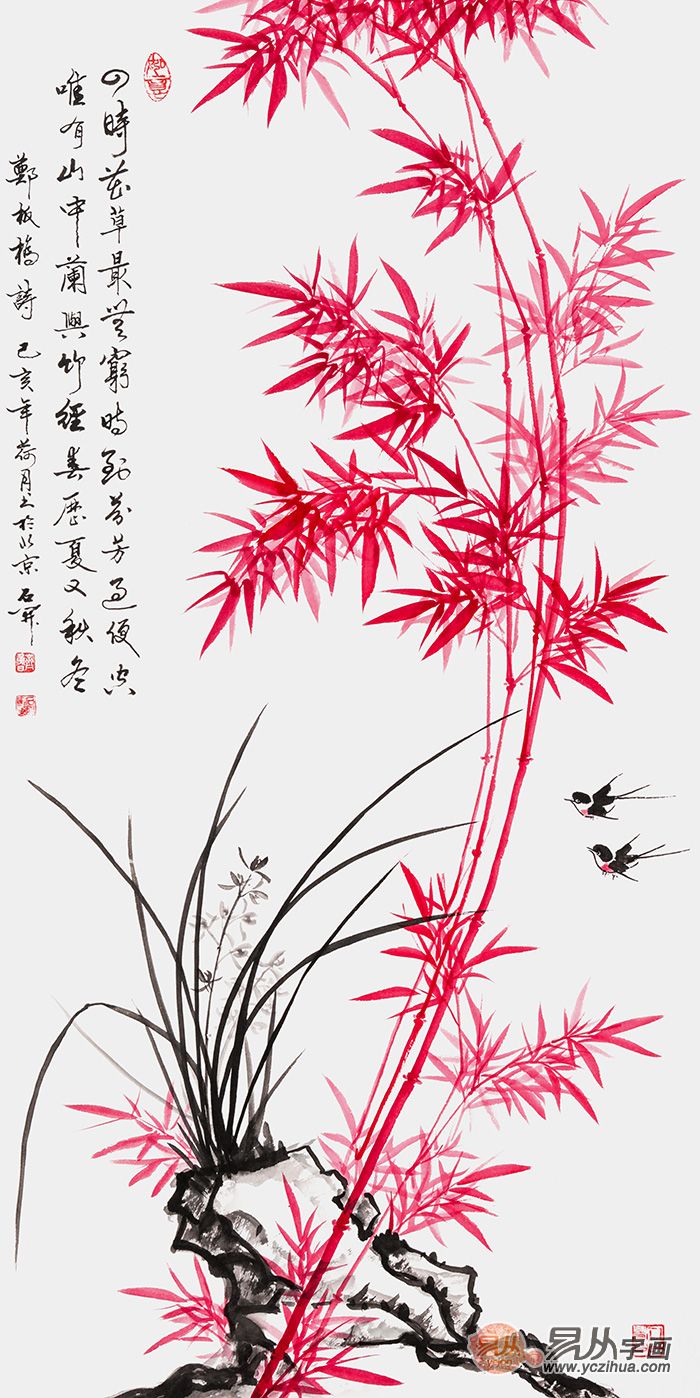 四時花草最無窮時到芬芳過便空
唯有山中蘭與竹經春歷夏又秋冬
鄭板橋詩 己亥年荷月上於北京 石開
易从
易从字画
www.yczihua.com